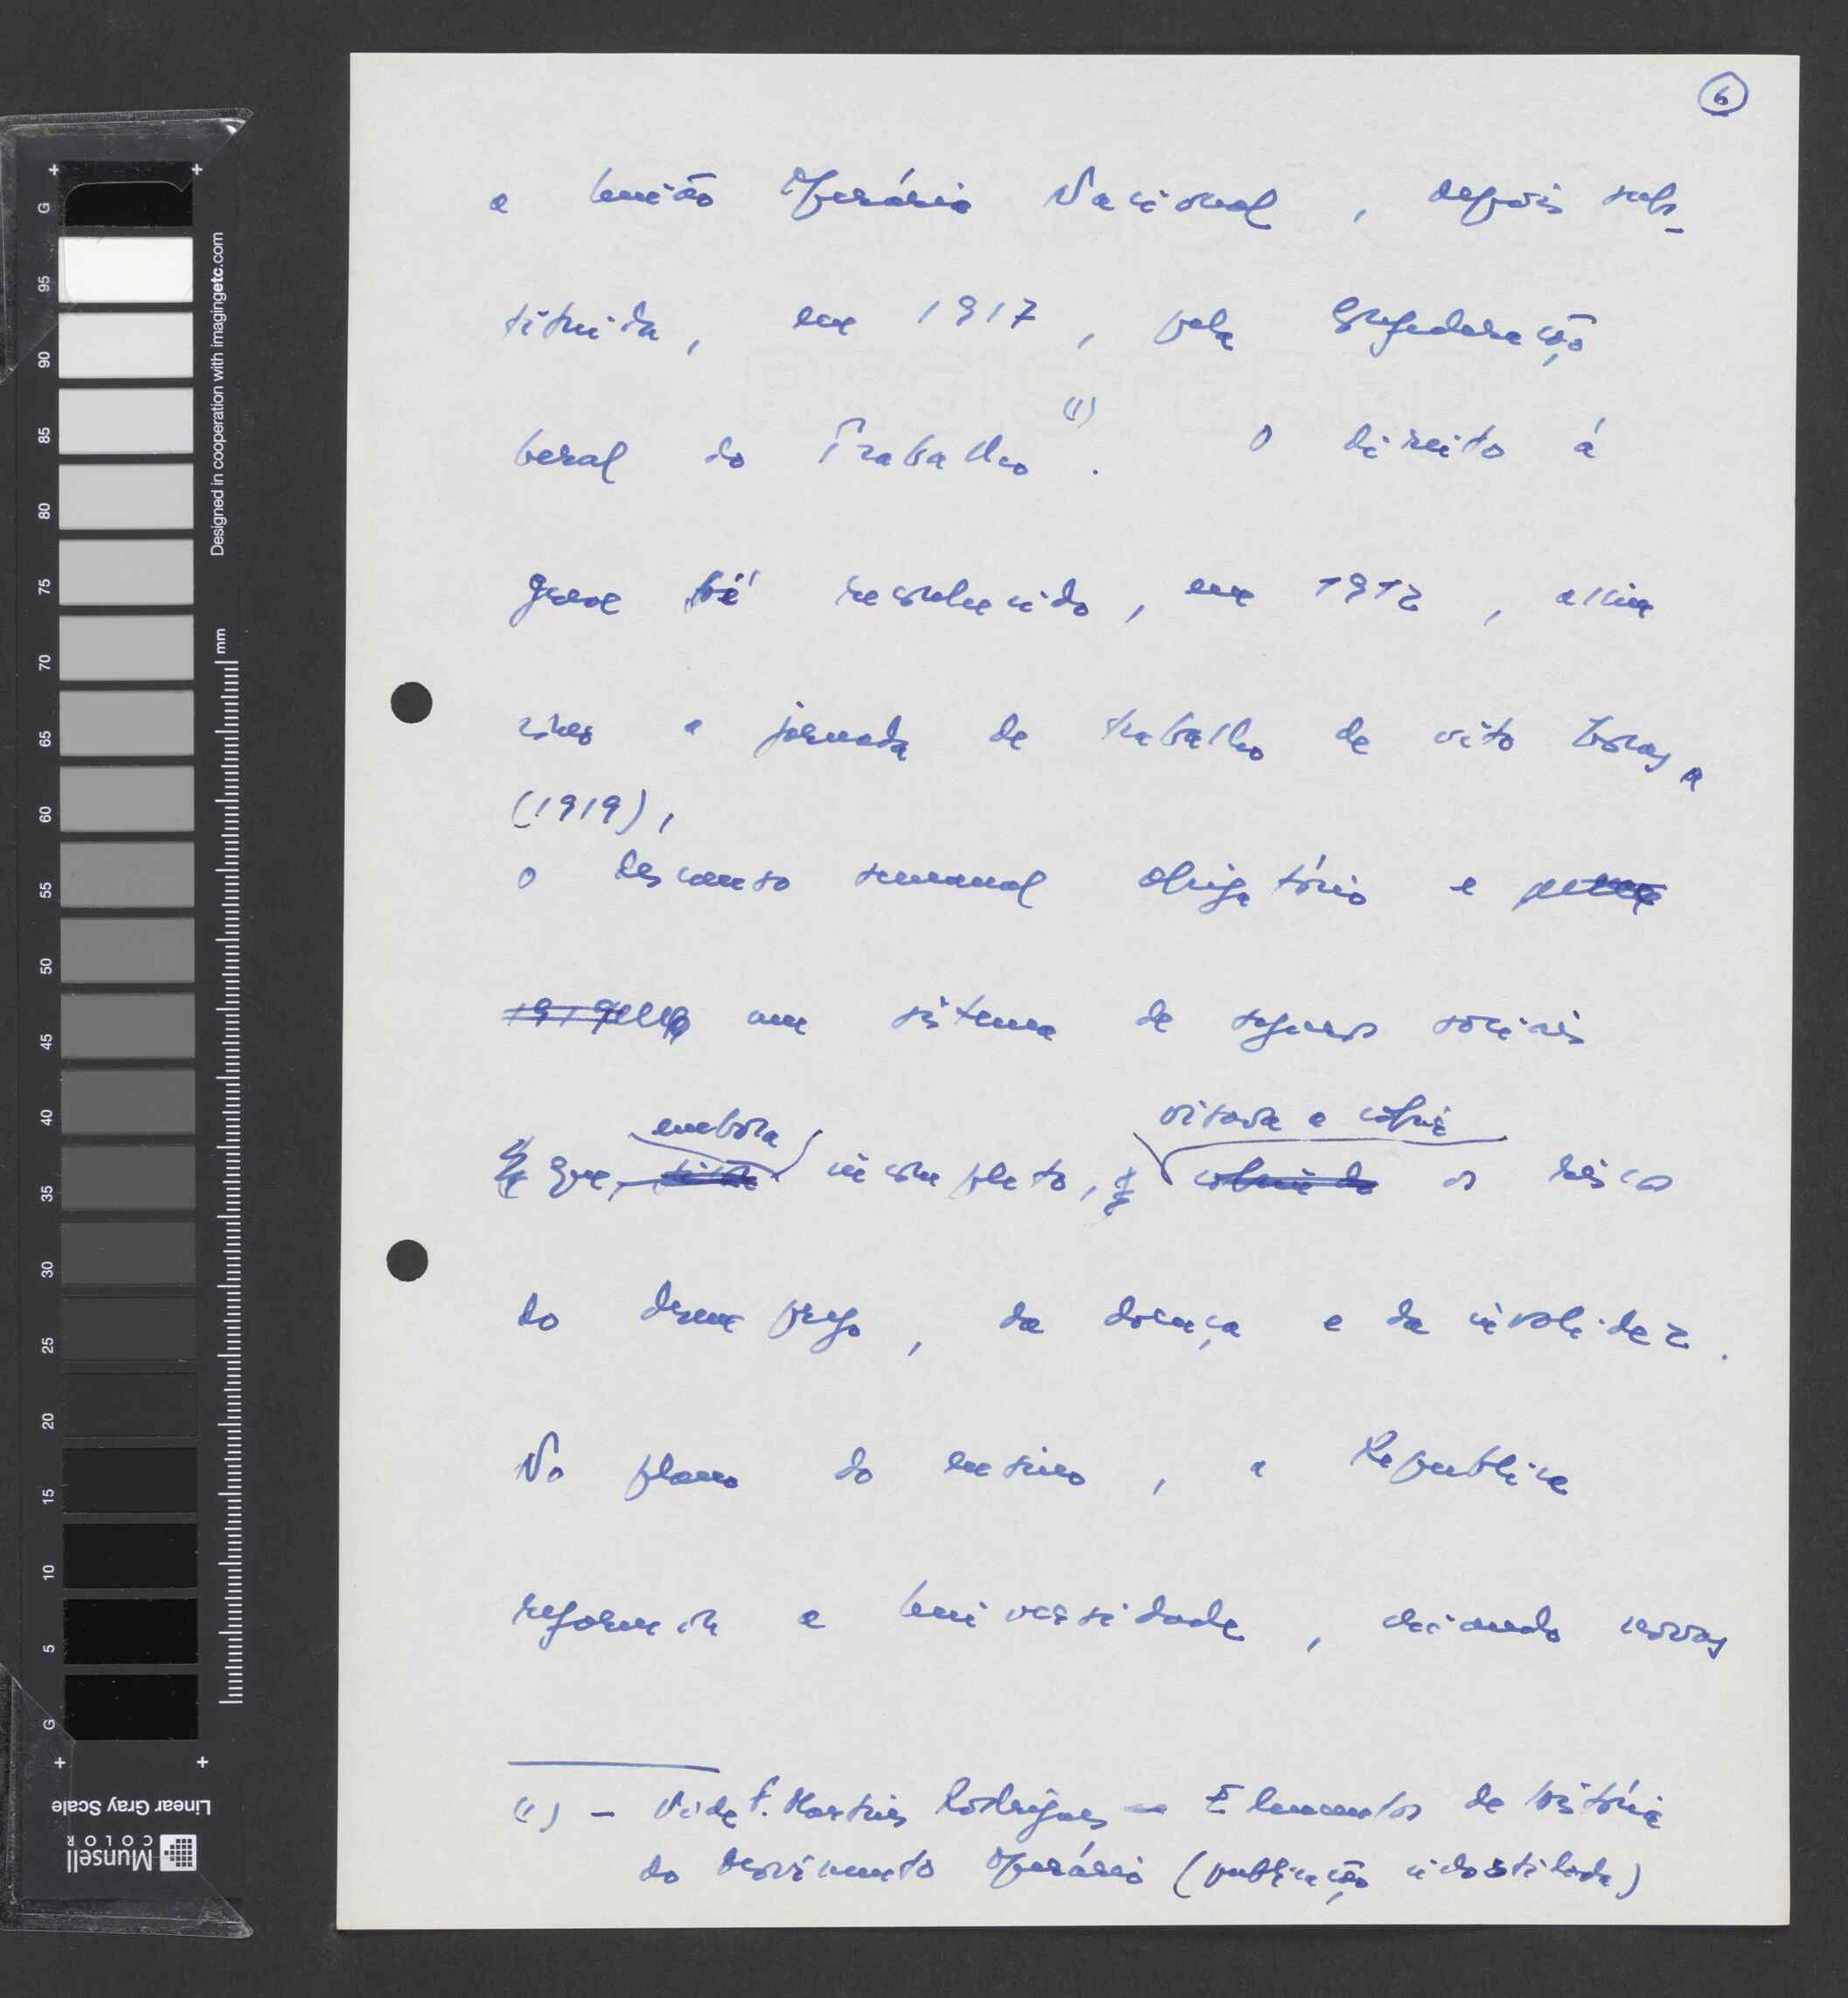 6
a União Operária Nacional, depois subs-
tituida, em 1917, pela Confederação
Geral do Trabalho (1). O direito à
greve foi reconhecido, em 1912, assim
como a jornada de trabalho de oito horas
(1919),
o descanso semanal obrigatório e
1919 um sistema de seguros sociais
embora visava a cobrir
que, incompleto, cobrindo os riscos
do desemprego, da doença e da invalidez.
No plano do ensino, a Republica
reformou a Universidade, criando novas
(1) - Vide F. Martins Rodrigues - Elementos de história
do movimento operário (publicação ciclostilada)
G 95 90 85 80 75 70 65 60 55 50 45 40 35 30 25 20 15 10 5 G
mm
Designed in cooperation with imagingetc.com
Linear Gray Scale
Munsell
COLOR